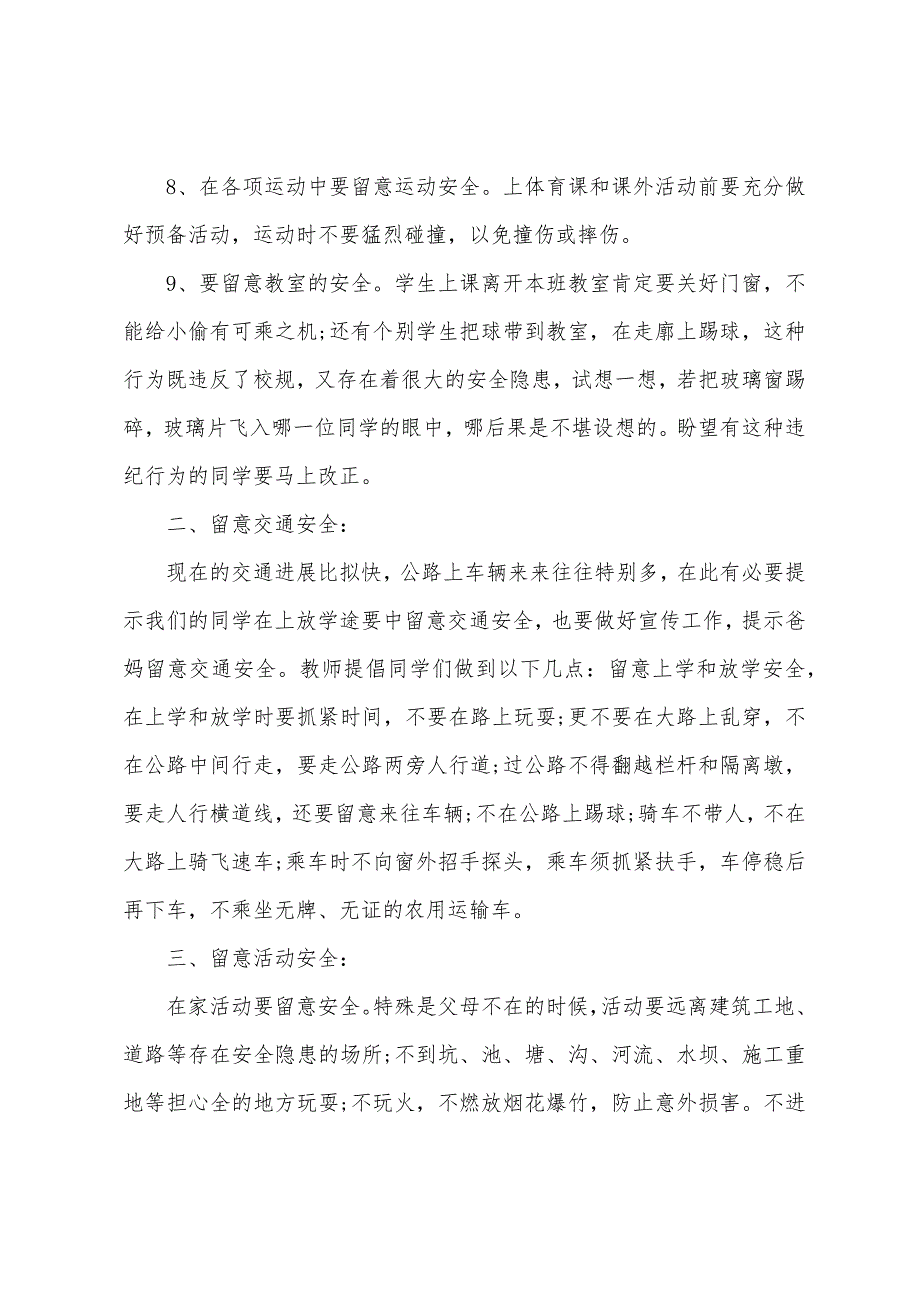 8、在各项运动中要留意运动安全。上体育课和课外活动前要充分做
好预备活动，运动时不要猛烈碰撞，以免撞伤或摔伤。
9、要留意教室的安全。学生上课离开本班教室肯定要关好门窗，不
能给小偷有可乘之机;还有个别学生把球带到教室，在走廊上踢球，这种
行为既违反了校规，又存在着很大的安全隐患，试想一想，若把玻璃窗踢
碎，玻璃片飞入哪一位同学的眼中，哪后果是不堪设想的。盼望有这种违
纪行为的同学要马上改正。
二、留意交通安全：
现在的交通进展比拟快，公路上车辆来来往往特别多，在此有必要提
示我们的同学在上放学途要中留意交通安全，也要做好宣传工作，提示爸
妈留意交通安全。教师提倡同学们做到以下几点：留意上学和放学安全，
在上学和放学时要抓紧时间，不要在路上玩耍;更不要在大路上乱穿，不
在公路中间行走，要走公路两旁人行道;过公路不得翻越栏杆和隔离墩，
要走人行横道线，还要留意来往车辆;不在公路上踢球;骑车不带人，不在
大路上骑飞速车;乘车时不向窗外招手探头，乘车须抓紧扶手，车停稳后
再下车，不乘坐无牌、无证的农用运输车。
三、留意活动安全：
在家活动要留意安全。特殊是父母不在的时候，活动要远离建筑工地、
道路等存在安全隐患的场所;不到坑、池、塘、沟、河流、水坝、施工重
地等担心全的地方玩耍;不玩火，不燃放烟花爆竹，防止意外损害。不进